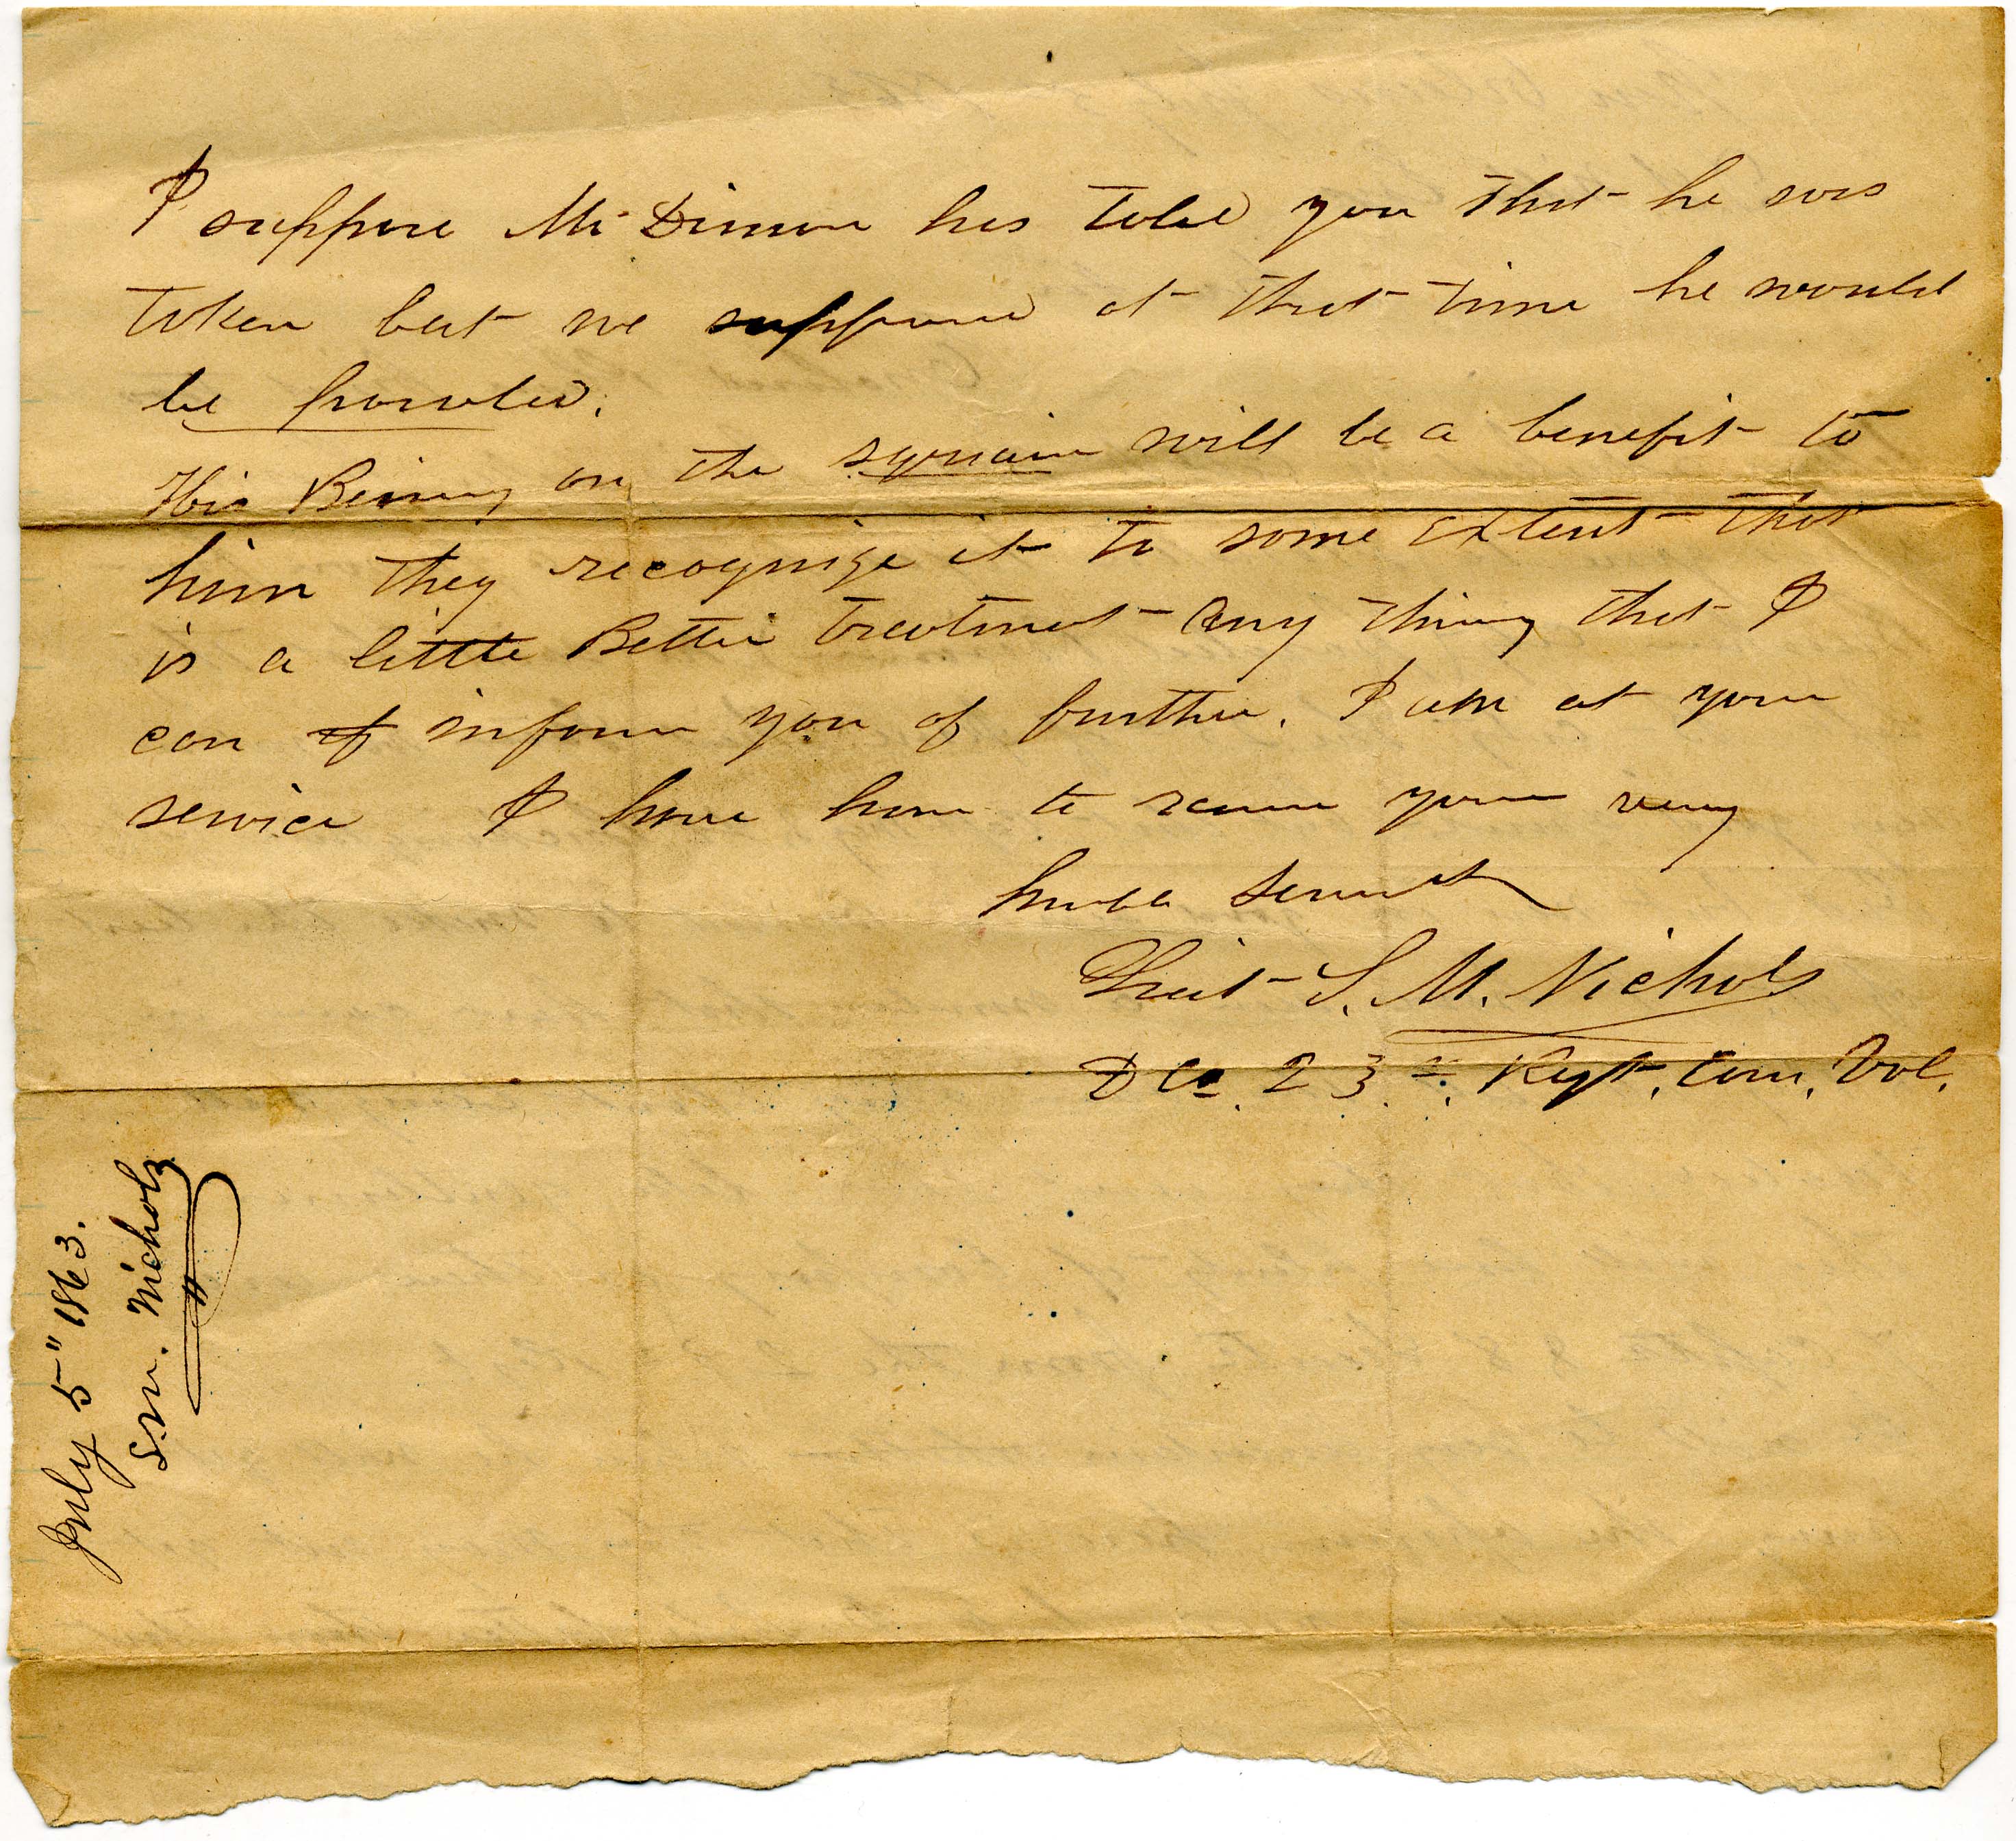 I suppose Mr Dimon has told you that he was
taken but we suppose at that time he would
be paroled.
His Being on the square will be a benefit to
him they recognize it to some extent that
is a little Better treatment Any thing that I
can of inform you of further. I am at your
service I have honor to your very
humble
Lieut S. M. Nichols
D Co. 23rd Regt. Con. Vol.
July 5" 1863.
S. M. Nichols